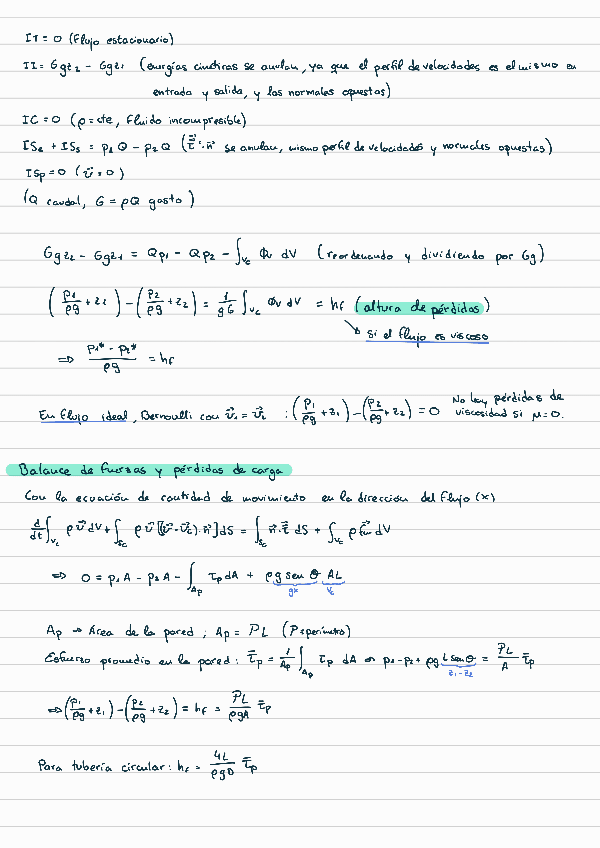 IT = 0 (Flujo estacionario)
II = Ggz₂ - Ggz₁ (energías cinéticas se anulan, ya que el perfil de velocidades es el mismo en
entrada y salida, y las normales opuestas)
IC = 0 (ρ = cte, fluido incompresible)
ISe + ISs = p₁Q - p₂Q (τ̿'·n̄ se anulan, mismo perfil de velocidades y normales opuestas)
ISp = 0 (v̄ = 0)
(Q caudal, G = ρQ gasto)
Ggz₂ - Ggz₁ = Qp₁ - Qp₂ - ∫_Vc Φv dV (reordenando y dividiendo por Gg)
(p₁/ρg + z₁) - (p₂/ρg + z₂) = 1/gG ∫_Vc Φv dV = hf (altura de pérdidas)
si el flujo es viscoso
⇒ (p₁* - p₂*)/ρg = hf
En flujo ideal, Bernoulli con v̄₁ = v̄₂ : (p₁/ρg + z₁) - (p₂/ρg + z₂) = 0 No hay pérdidas de
viscosidad si μ = 0.
Balance de fuerzas y pérdidas de carga
Con la ecuación de cantidad de movimiento en la dirección del flujo (x)
d/dt ∫_Vc ρv̄ dV + ∫_Sc ρv̄ [(v̄ - v̄c)·n̄] dS = ∫_Sc n̄·τ̿ dS + ∫_Vc ρf̄m dV
⇒ 0 = p₁A - p₂A - ∫_Ap τp dA + ρg sen θ AL
gx Vc
Ap → Área de la pared ; Ap = PL (P ≡ perímetro)
Esfuerzo promedio en la pared : τ̄p = 1/Ap ∫_Ap τp dA → p₁ - p₂ + ρg L sen θ = PL/A τ̄p
z₁ - z₂
⇒ (p₁/ρg + z₁) - (p₂/ρg + z₂) = hf = PL/ρgA τ̄p
Para tubería circular : hf = 4L/ρgD τ̄p